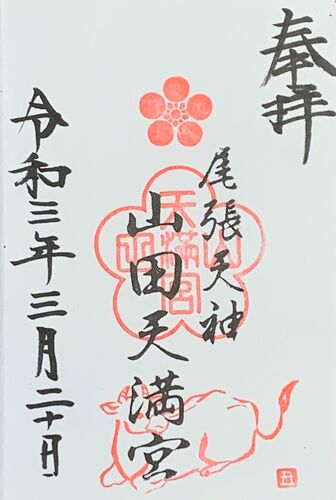 奉拝
尾張天神
山田天満宮
令和三年三月二十日
天満宮
山田
丑